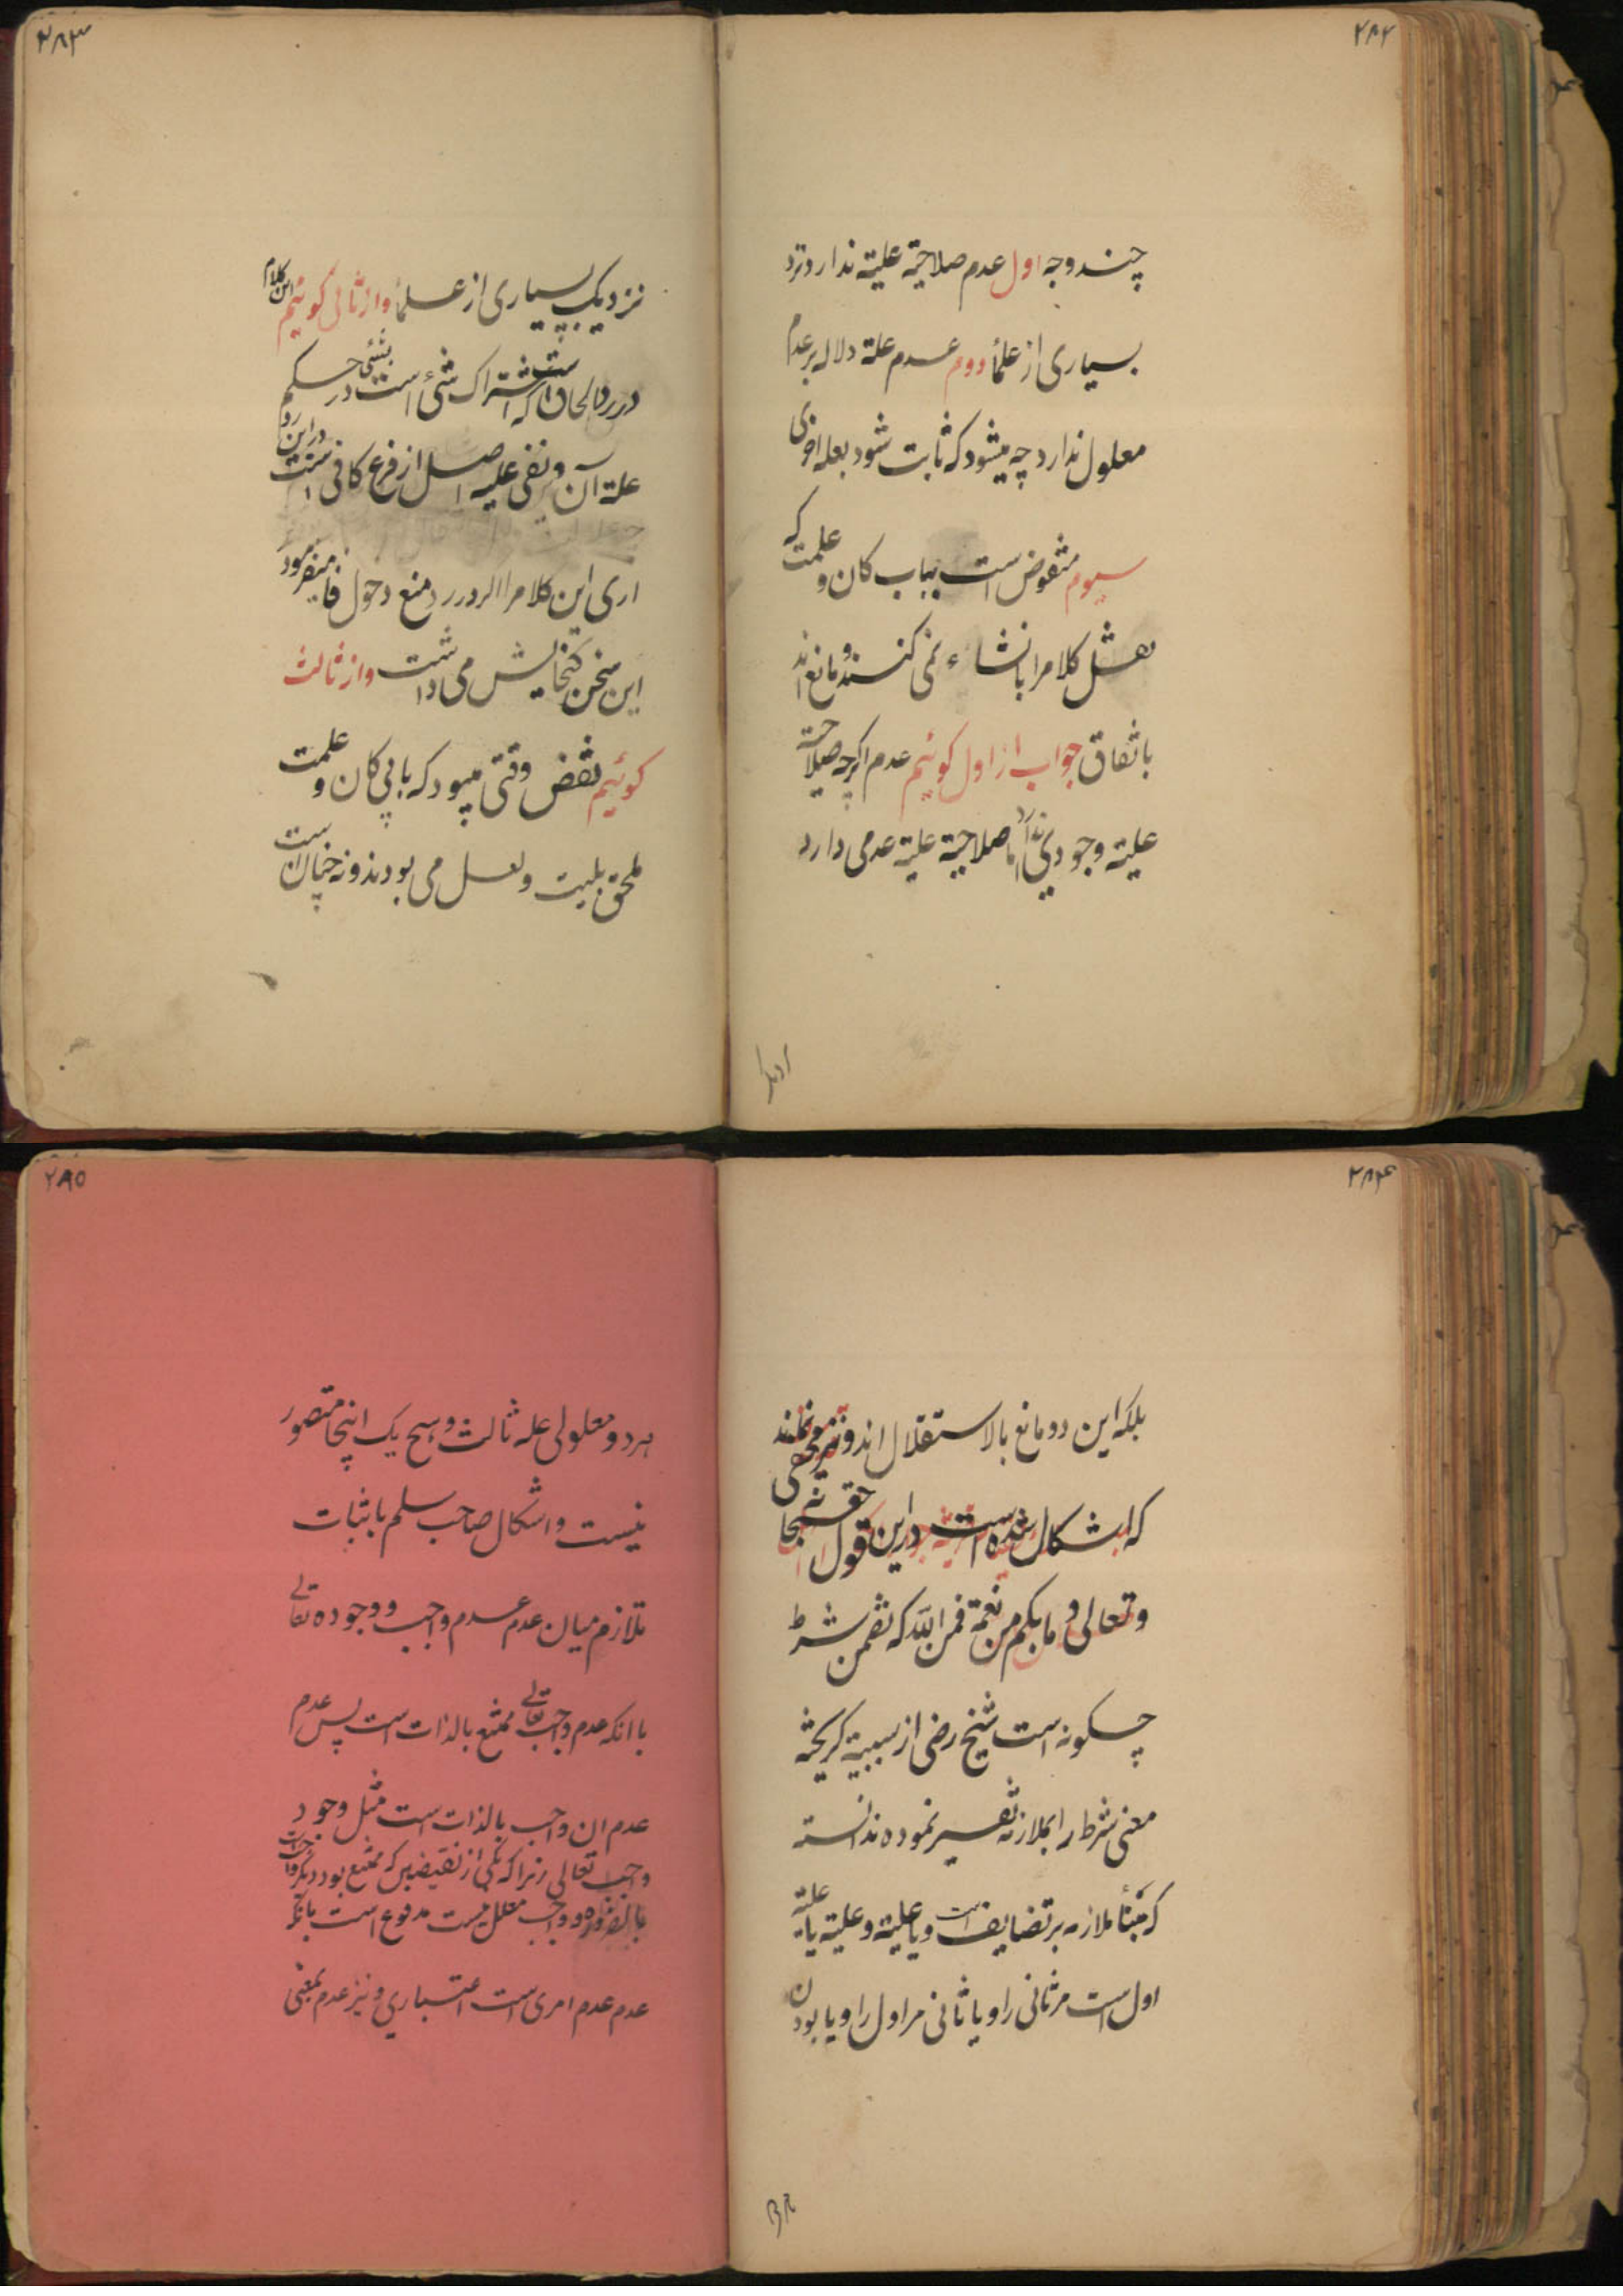 ۲۸۲
چند وجه اول عدم صلاحیة علیة ندارد نزد
بسیاری از علمأ دوم عدم علة دلاله بر عدم
معلول ندارد چه میشود که ثابت شود بعله اخری
سیوم منقوض است بباب کان و علمت که
نقل کلام را بانشاء نمی کنند و مانع اند
باتفاق جواب از اول کوئیم عدم اکرچه صلاحیة
علیة وجودی ندارد اما صلاحیة علیة عدمی دارد
۲۸۳
نزدیک بسیاری از علمأ و از ثانی کوئیم این کلام
در رد الحاق است که اشتراک شئ است بشئی در حکم
علة آن و نفی علیه اصل از فرع کافی است در این رد
اری این کلام را اکر در رد منع دخول فا میفرمود
این سخن کنجایش می داشت و از ثالث
کوئیم نقض وقتی میبود که بابی کان و علمت
ملحق بلیت و لعل می بودند و نه چنان است
۲۸۴
بلکه این دو مانع بالاستقلال اند و نیز مخفی نماند
که اشکال شده است در این قول حقه سبحانه
و تعالی و ما بکم من نعمة فمن الله که تضمن شرط
چکونه است شیخ رضی از سببیة کریخته
معنی شرط را بملازمه تفسیر نموده ندانسته
که مبنأ ملازمه بر تضایف است و یا علیة و علیة یا علیة
اول است مر ثانی را و یا ثانی مر اول را و یا بودن
۲۸۵
هر دو معلولی علة ثالث و هیچ یک اینجا متصور
نیست و اشکال صاحب سلم باثبات
تلازم میان عدم عدم واجب و وجوده تعالی
با انکه عدم واجب تعالی ممتنع بالذات است پس عدم
عدم ان واجب بالذات است مثل وجود
واجب تعالی زیرا که یکی از نقیضین که ممتنع بود دیکر واجب است
بالضروره و واجب معلل نیست مدفوع است بانکه
عدم عدم امری است اعتباری و نیز عدم بمعنی